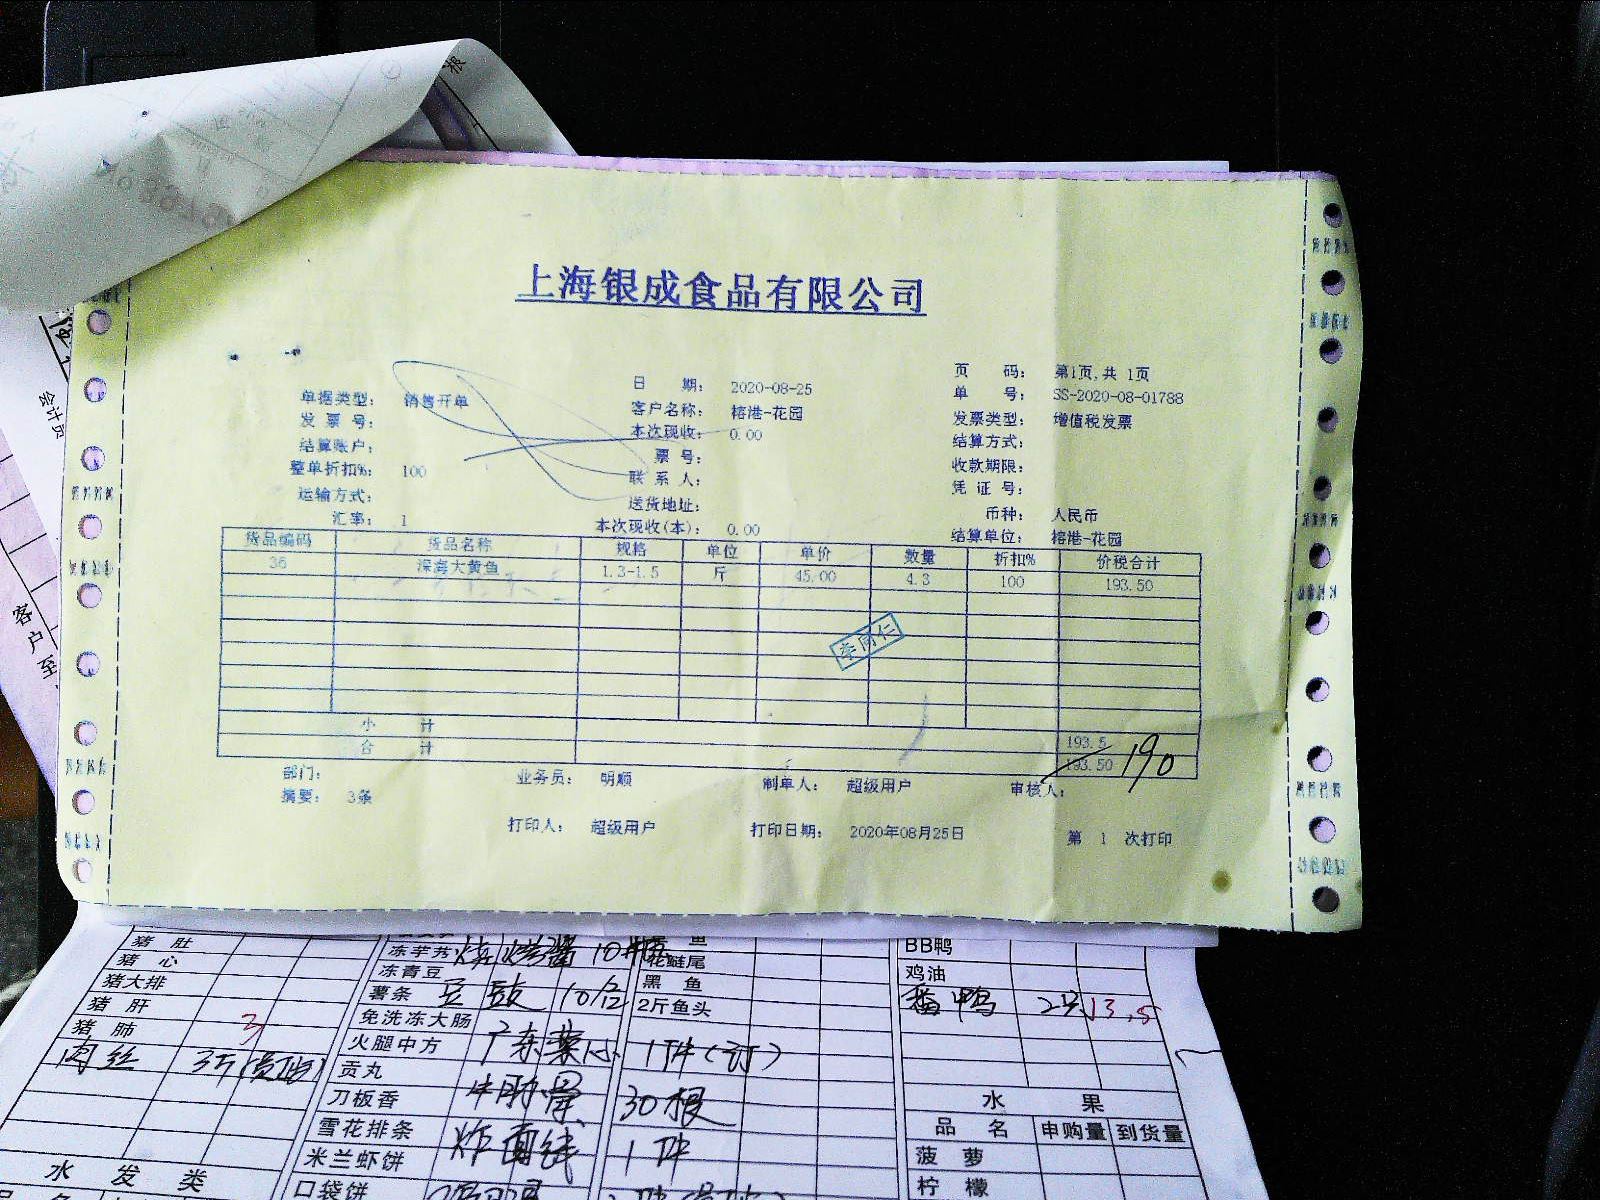 根
会计员
客户至
上海银成食品有限公司
单据类型： 销售开单 日 期： 2020-08-25 页 码： 第1页,共 1页
发 票 号： 客户名称： 榕港-花园 单 号： SS-2020-08-01788
结算账户： 本次现收： 0.00 发票类型： 增值税发票
整单折扣%： 100 票 号： 结算方式：
运输方式： 联 系 人： 收款期限：
汇率： 1 送货地址： 凭 证 号：
本次现收(本)： 0.00 币种： 人民币
结算单位： 榕港-花园
货品编码 货品名称 规格 单位 单价 数量 折扣% 价税合计
36 深海大黄鱼 1.3-1.5 斤 45.00 4.3 100 193.50
李同仁
小 计 193.5
合 计 193.50 190
部门： 业务员： 明顺 制单人： 超级用户 审核人：
摘要： 3条
打印人： 超级用户 打印日期： 2020年08月25日 第 1 次打印
猪 肚
猪 心
猪大排
猪 肝
猪 肺 3
肉丝 3斤
水 发 类
冻芋艿 烧烤酱 10
冻青豆
薯条 豆豉 10
免洗冻大肠
火腿中方 广东菜心 1件(订)
贡丸
刀板香 牛肋骨 30根
雪花排条
米兰虾饼 炸面线 1件
口袋饼
鱼
花鲢尾
黑 鱼
2斤鱼头
BB鸭
鸡油
番鸭 2只 13.5
水 果
品 名 申购量 到货量
菠 萝
柠 檬